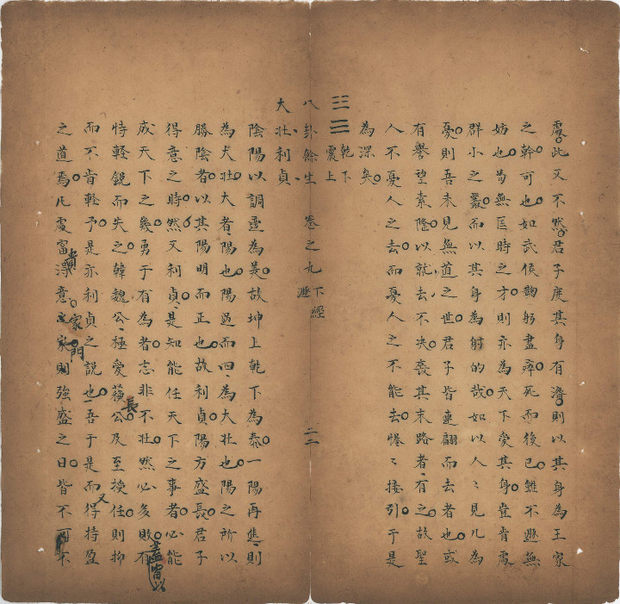 處此又不然君子度其身有濟則以其身為王家
之幹可也如武侯鞠躬盡瘁死而後已雖不遯無
妨也茍無匡時之才則亦為天下愛其身豈肯處
群小之叢而以其身為射的哉如以人〻見几為
憂則吾未見無道之世君子皆連翩而去者也或
有譽望素隆以就去不失喪其末路者有之故聖
人不憂人之去而憂人之不能去惓〻接引于是
為深矣
䷡ 乾下震上
八卦餘生 卷之九 下經 遯 二二
大壯利貞
陰陽以調為義故坤上乾下為泰一陽再進則
為大壯大者陽也陽過而四為大壯也陽之所以
勝陰者以其陽明而正也故利貞陽方盛長君子
得意之時然又利貞是知能任天下之事者必能
成天下之幾勇于有為者志非不壯然必多敗有
恃輕銳而失之韓魏公極愛蘇長公及至換任則抑
而不肯輕予是亦利貞之說也吾于是而又得持盈
之道焉凡處富貴得意家門強盛之日皆不可不